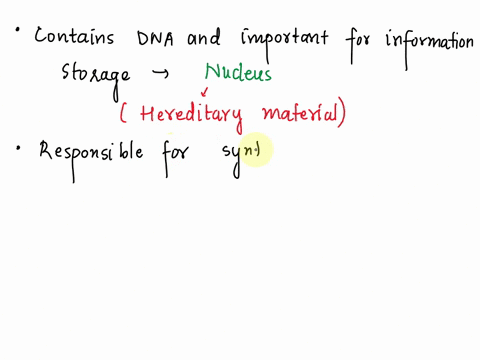 • Contains DNA and important for information
storage → Nucleus
(Hereditary material)
• Responsible for synt